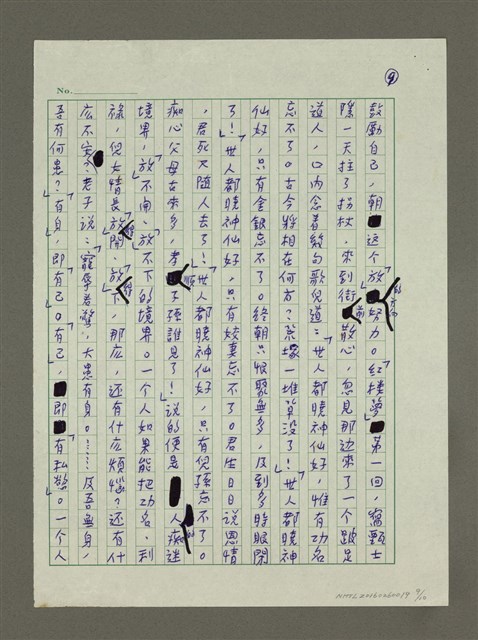 ⑨
No.
鼓勵自己，朝这个放的方向努力。红楼夢第一回，寫甄士
隱一天拄了拐杖，來到街前散心，忽見那边來了一个跛足
道人，口内念着幾句歌兒道：「世人都曉神仙好，惟有功名
忘不了。古今将相在何方？荒塚一堆草沒了！」「世人都曉神
仙好，只有金銀忘不了。終朝只恨聚無多，及到多時眼閉
了！」「世人都曉神仙好，只有姣妻忘不了。君生日日說恩情
，君死又隨人去了！」「世人都曉神仙好，只有兒孫忘不了。
痴心父母古來多，孝順子孫誰見了！」說的便是人痴迷
境界，「放不開、放不下」的境界。一个人如果能把功名、利
祿，兒女情長「放得開、放得下」，那広，还有什広煩惱？还有什
広不安？老子說：「寵辱若驚，大患有身。……及吾無身，
吾有何患？」「有身」，即「有己」。「有己」，即「有私慾」。一个人
NMTL20160260019 9/10